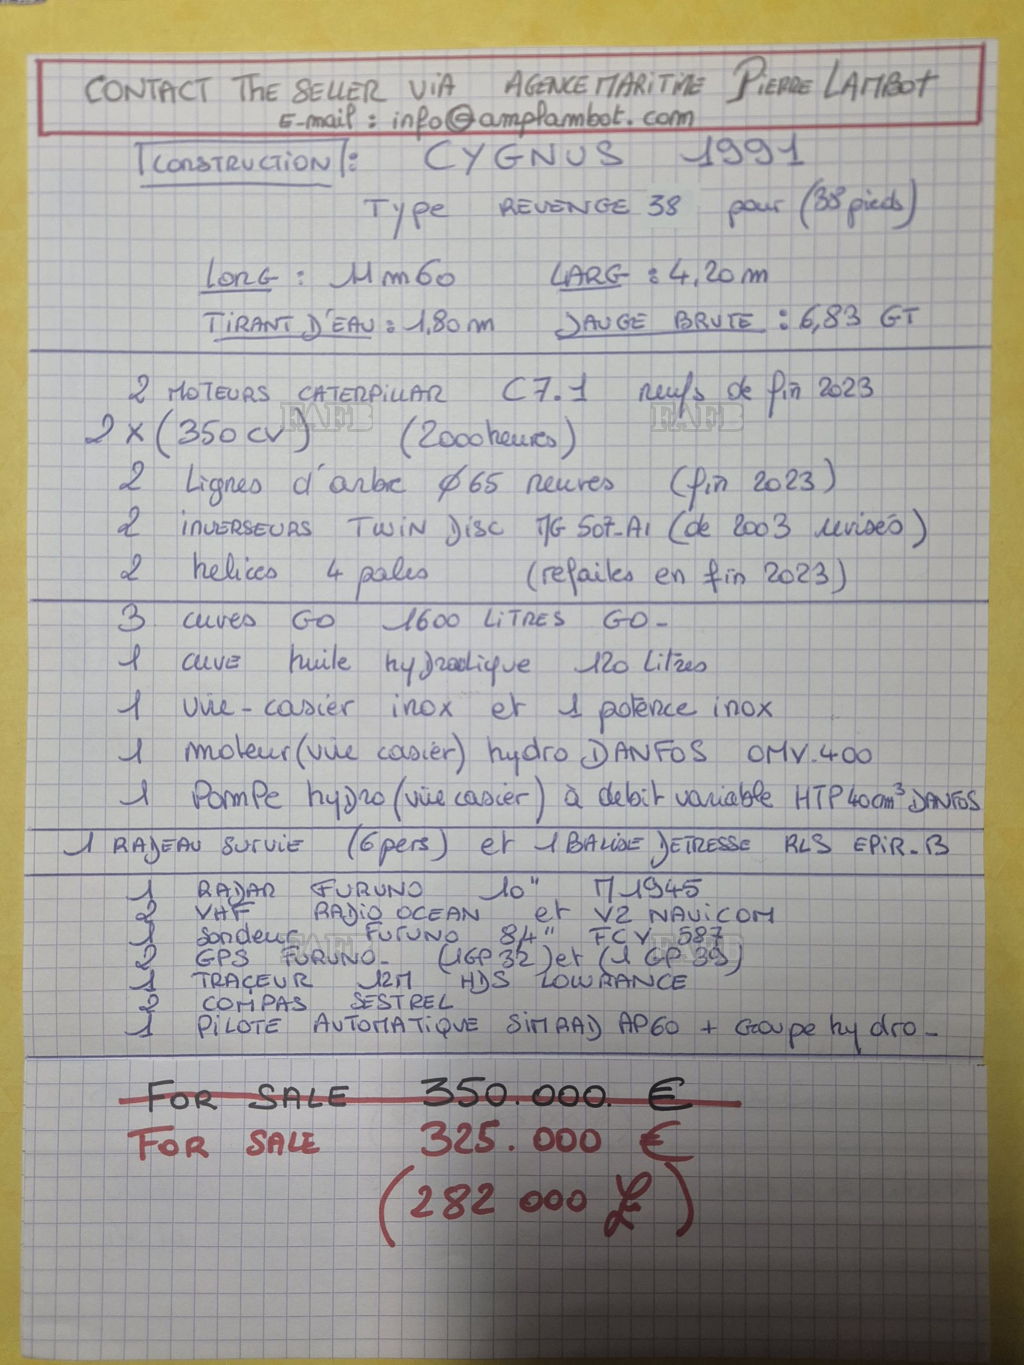 CONTACT THE SELLER VIA AGENCE MARITIME PIERRE LAMBOT
E-mail : info@amplambot.com
CONSTRUCTION : CYGNUS 1991
Type REVENGE 38 pour (38 pieds)
LONG : 11m60 LARG : 4,20m
TIRANT D'EAU : 1,80m JAUGE BRUTE : 6,83 GT
2 MOTEURS CATERPILLAR C7.1 neufs de fin 2023
FAFB FAFB
2 x (350 CV) (2000 heures)
2 Lignes d'arbre Ø65 neuves (fin 2023)
2 INVERSEURS TWIN DISC MG 507-A1 (de 2003 révisés)
2 helices 4 pales (refaites en fin 2023)
3 cuves GO 1600 LITRES GO-
1 cuve huile hydraulique 120 Litres
1 vire-casier inox et 1 potence inox
1 moteur (vire casier) hydro DANFOS OMV.400
1 Pompe hydro (vire casier) à debit variable HTP 40cm³ DANFOS
1 RADEAU SURVIE (6 pers) et 1 BALISE DETRESSE RLS EPIR-B
1 RADAR FURUNO 10" M1945
2 VHF RADIO OCEAN et V2 NAVICOM
1 Sondeur FURUNO 8,4" FCV 587
FAFB FAFB
2 GPS FURUNO- (1GP 32) et (1 GP 39)
1 TRACEUR 12M HDS LOWRANCE
2 COMPAS SESTREL
1 PILOTE AUTOMATIQUE SIMRAD AP60 + Groupe hydro-
FOR SALE 350.000. €
FOR SALE 325.000 €
(282 000 £)